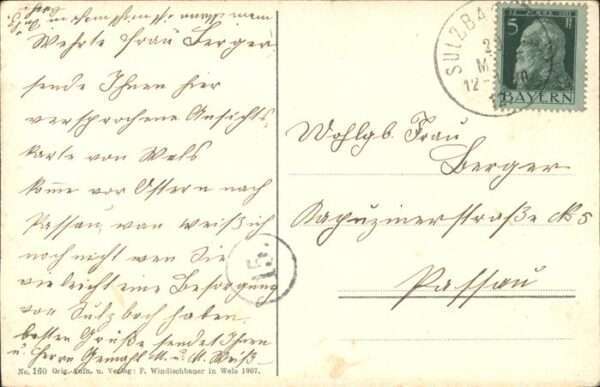 Werthe Frau Berger
sende Ihnen hier
versprochene Ansichts
karte von Wels
komme vor Ostern nach
Passau, wan weiß ich
noch nicht wen Sie
vieleicht eine Besorgung
von Sulzbach haben.
besten Grüße sendet Ihnen
u. Herrn Gemahl M. u. M. Weiß
No. 160 Orig.-Aufn. u. Verlag: F. Windischbauer in Wels 1907.
SULZBA
12-
5
BAYERN
15.
Wohlgb. Frau
Berger
Kapuzinerstraße No 5
Passau